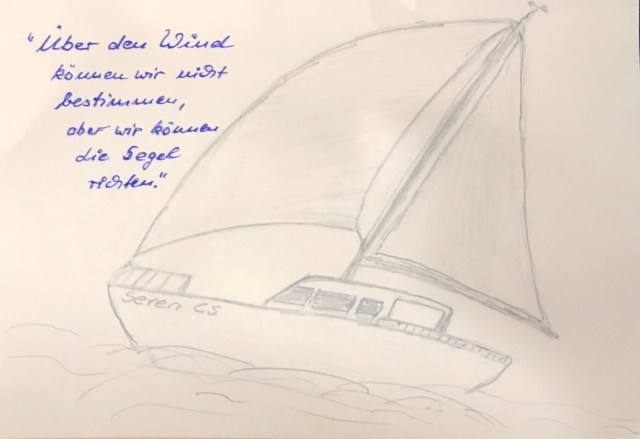 "Über den Wind
können wir nicht
bestimmen,
aber wir können
die Segel
richten."
Seren CS